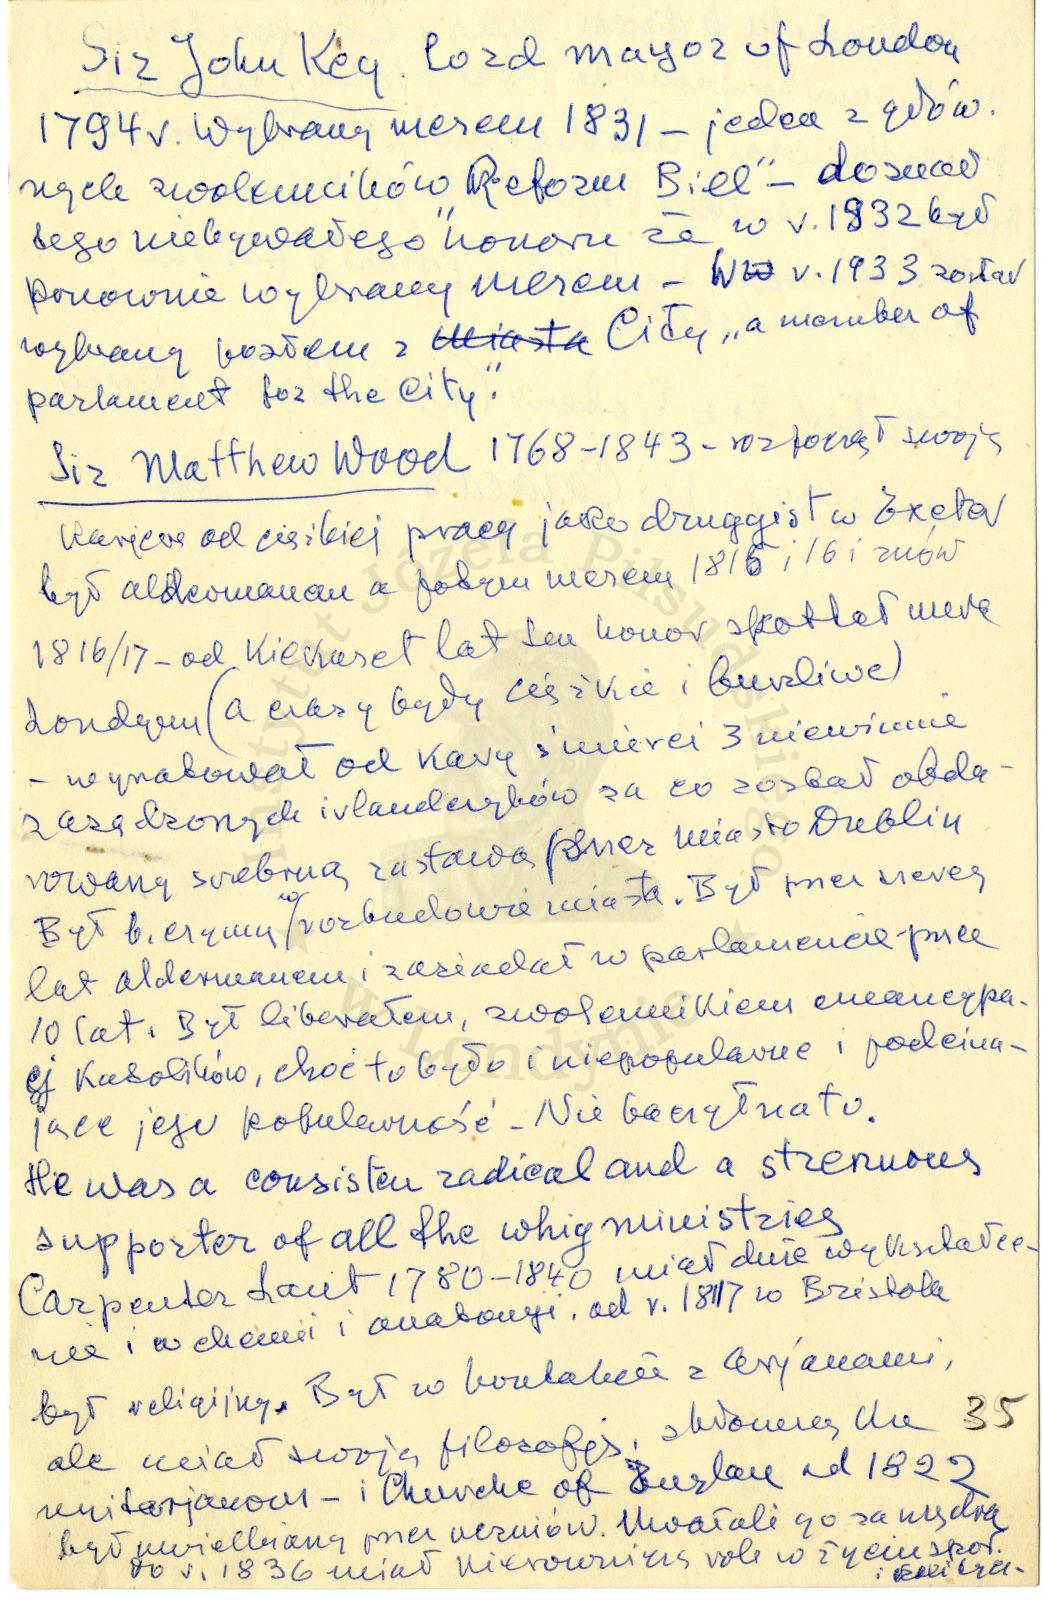 Sir John Key. Lord mayor of London
1794 r. Wybrany merem 1831 – jeden z głów.
nych zwolenników „Reform Biel" – doznał
tego niebywałego honoru że w r. 1832 był
ponownie wybrany merem – W r. 1933 został
wybrany posłem z Miasta City „a member of
parlament for the City".
Sir Matthew Wood 1768–1843 – rozpoczął swoją
karierę od ciężkiej pracy jako druggist w Exeter
był aldeomanem a potym merem 1815 i 16 i znów
1816/17 – od kilkuset lat ten honor spotkał mera
Londynu (a czasy były ciężkie i burzliwe)
– wyratował od kary śmierci 3 niewinnie
zasądzonych irlandczyków za co został obda-
rowany srebrną zastawą przez miasto Dublin
Był b. czynny w rozbudowie miasta. Był przez szereg
lat aldermanem i zasiadał w parlamencie przez
10 lat. Był liberałem, zwolennikiem emancypa-
cji Katolików, choć to było i niepopularne i podcina-
jące jego popularność – Nie baczył na to.
He was a consisten radical and a strenuous
supporter of all the whig ministries
Carpenter Lant 1780–1840 miał duże wykształce-
nie i w chemii i anatomji. od r. 1817 w Bristolu
był religijny. Był w kontakcie z arjanami,
ale miał swoją filozofję, skłonną ku 35
unitarjanom – i Churche of od 1822
był uwielbiany przez uczniów. Uważali go za mądrą
do r. 1836 miał kierowniczą rolę w życiu społ.
i